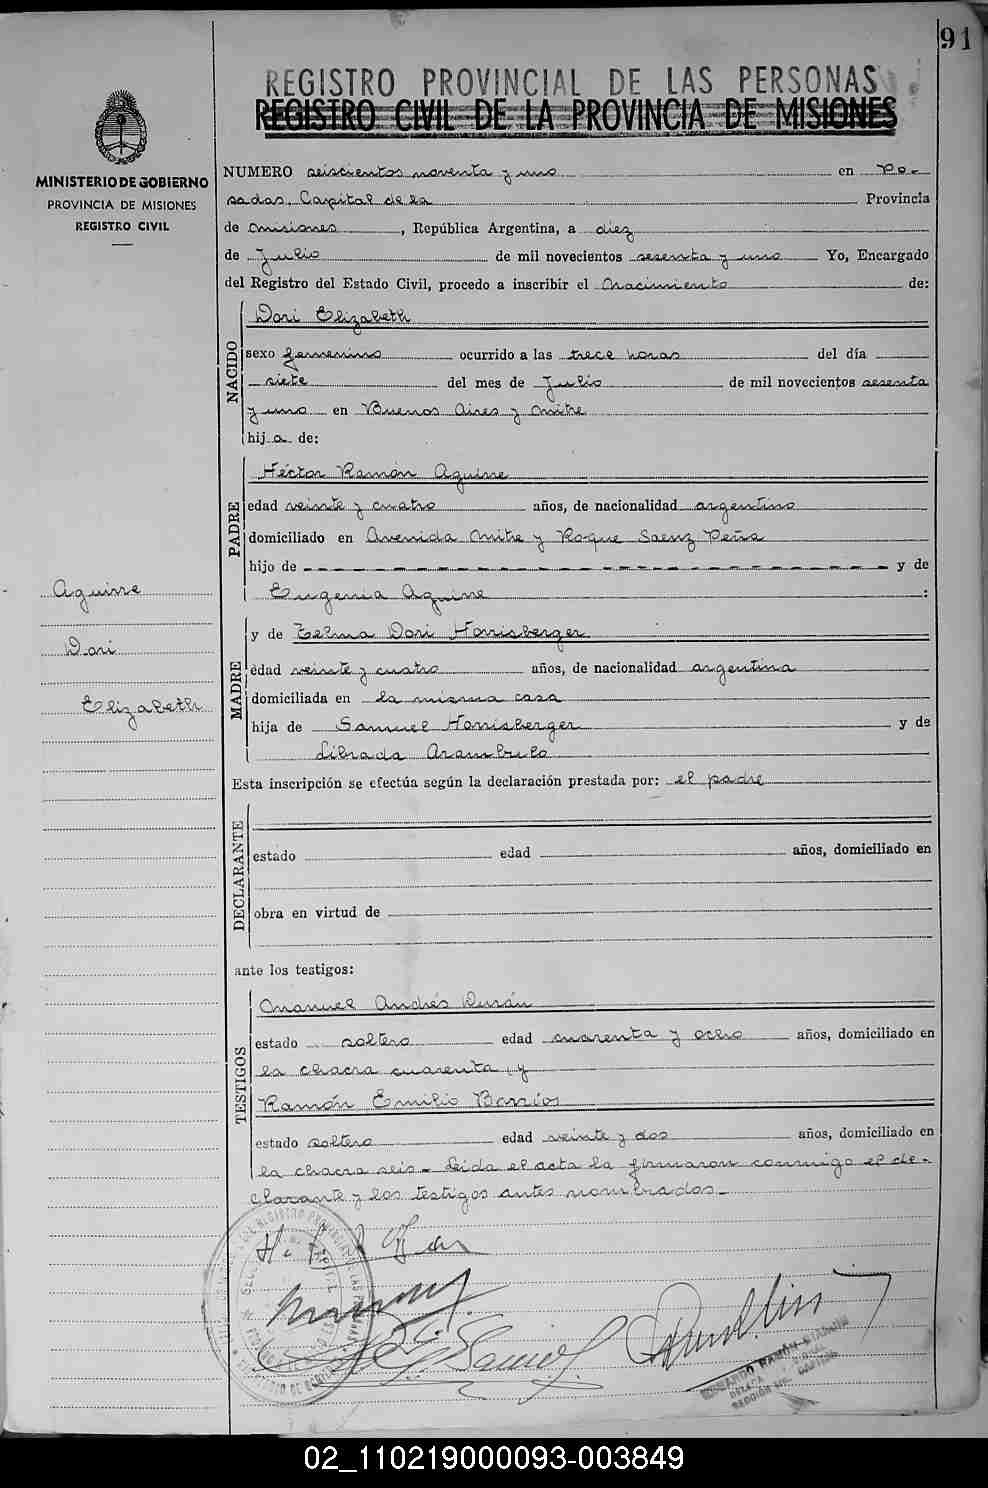 91
REGISTRO PROVINCIAL DE LAS PERSONAS
REGISTRO CIVIL DE LA PROVINCIA DE MISIONES
MINISTERIO DE GOBIERNO
PROVINCIA DE MISIONES
REGISTRO CIVIL
NUMERO seiscientos noventa y uno en Po-
sadas, Capital de la Provincia
de Misiones, República Argentina, a diez
de Julio de mil novecientos sesenta y uno Yo, Encargado
del Registro del Estado Civil, procedo a inscribir el Nacimiento de:
NACIDO
Dori Elizabeth
sexo femenino ocurrido a las trece horas del día
siete del mes de Julio de mil novecientos sesenta
y uno en Buenos Aires y Mitre
hija de:
PADRE
Héctor Ramón Aguirre
edad veinte y cuatro años, de nacionalidad argentino
domiciliado en Avenida Mitre y Roque Saenz Peña
hijo de y de
Eugenia Aguirre :
Aguirre
Dori
Elizabeth
MADRE
y de Telma Dori Honisberger
edad veinte y cuatro años, de nacionalidad argentina
domiciliada en la misma casa
hija de Samuel Honisberger y de
Librada Arambulo
Esta inscripción se efectúa según la declaración prestada por: el padre
DECLARANTE
estado edad años, domiciliado en
obra en virtud de
ante los testigos:
TESTIGOS
Manuel Andrés Durán
estado soltero edad cuarenta y ocho años, domiciliado en
la chacra cuarenta, y
Ramón Emilio Barrios
estado soltero edad veinte y dos años, domiciliado en
la chacra seis - Leida el acta la firmaron conmigo el de-
clarante y los testigos antes nombrados -
02_110219000093-003849